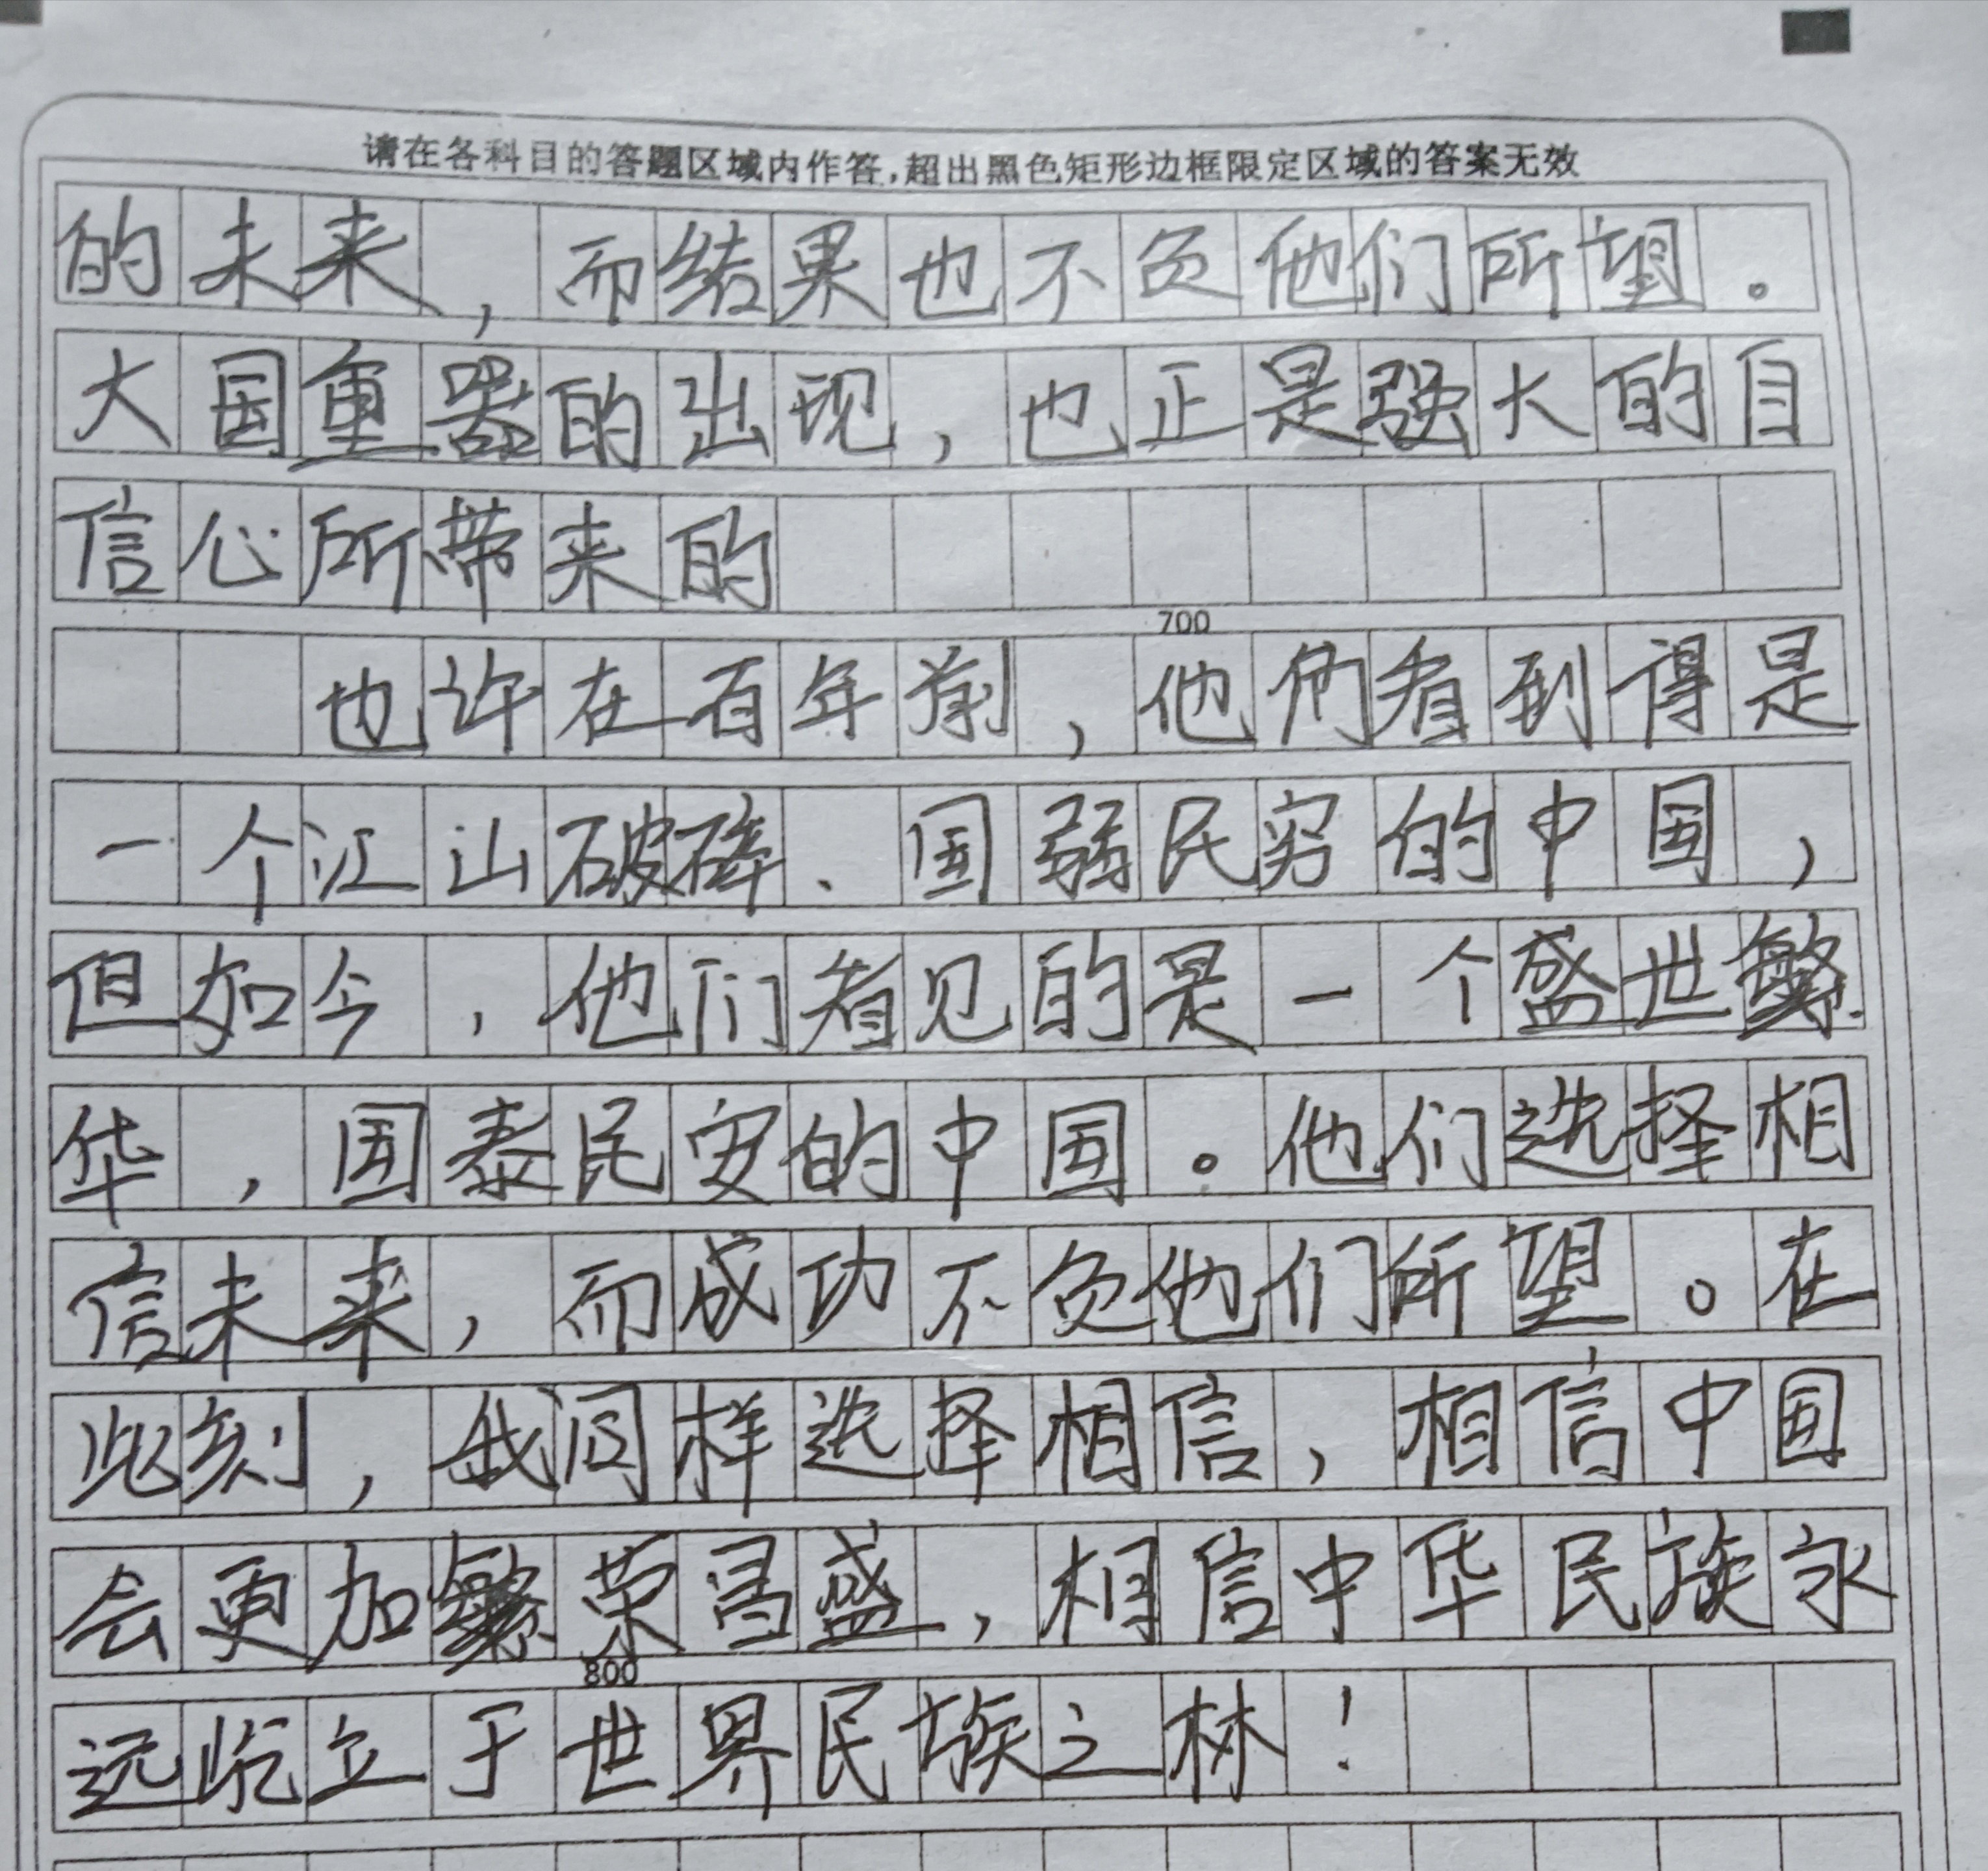 请在各科目的答题区域内作答,超出黑色矩形边框限定区域的答案无效
的未来，而结果也不负他们所望。
大国重器的出现，也正是强大的自
信心所带来的
700
也许在百年前，他们看到得是
一个江山破碎、国弱民穷的中国，
但如今，他们看见的是一个盛世繁
华，国泰民安的中国。他们选择相
信未来，而成功不负他们所望。在
此刻，我同样选择相信，相信中国
会更加繁荣昌盛，相信中华民族永
800
远屹立于世界民族之林！